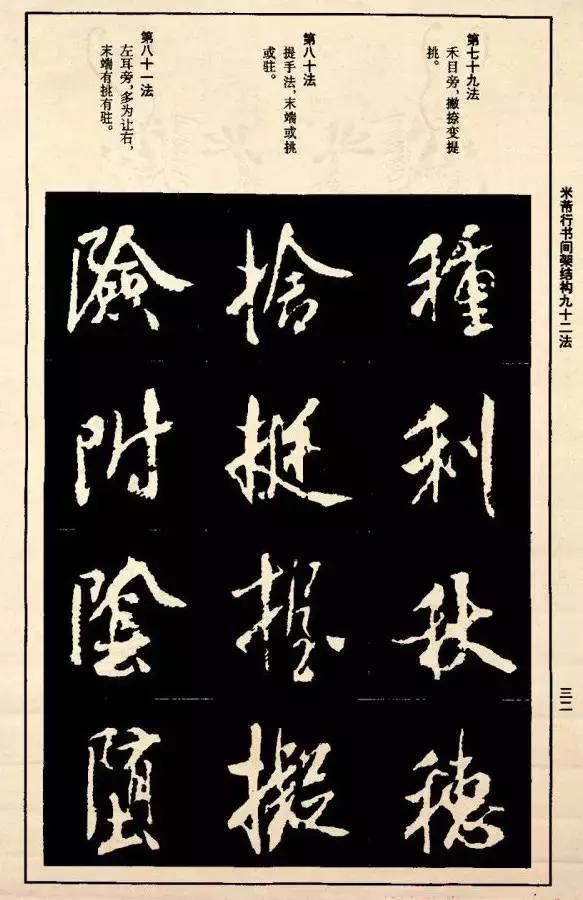 米芾行书间架结构九十二法
三二
第七十九法
禾目旁，撇捺变提
挑。
第八十法
提手法，末端或挑
或驻。
第八十一法
左耳旁，多为让右，
末端有挑有驻。
種利秋穗
捨挺握擬
險附陰堕